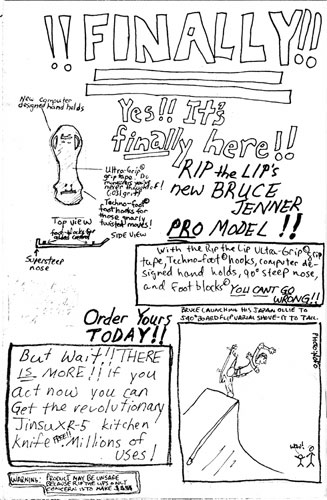 !!FINALLY!!!
Yes!! It's
finally here!!
New computer
designed hand holds
RIP the LIP's
new BRUCE
JENNER
PRO MODEL !!
Ultra-Grip©
grip tape. Do
never thought of!
Techno-foot©
foot hooks for
those gnarly
twisted moves!
Top view
foot-blocks for
SIDE VIEW
Supersteep
nose
With the Rip the Lip Ultra-Grip© grip
tape, Techno-foot© hooks, computer de-
signed hand holds, 90° steep nose,
and Foot blocks© YOU CAN'T GO
WRONG!!
Order Yours
TODAY!!
BRUCE LAUNCHING HIS JAPAN OLLIE TO
540° BOARD FLIP VARIAL SHOVE-IT TO TAIL.
But Wait!! THERE
IS MORE!! if you
act now you can
Get the revolutionary
Jinsu XR-5 kitchen
knife FREE! Millions of
uses!
WOW!
WARNING: PRODUCT MAY BE UNSAFE
BECAUSE RIP THE LIP'S ONLY
CONCERN IS TO MAKE $$$$